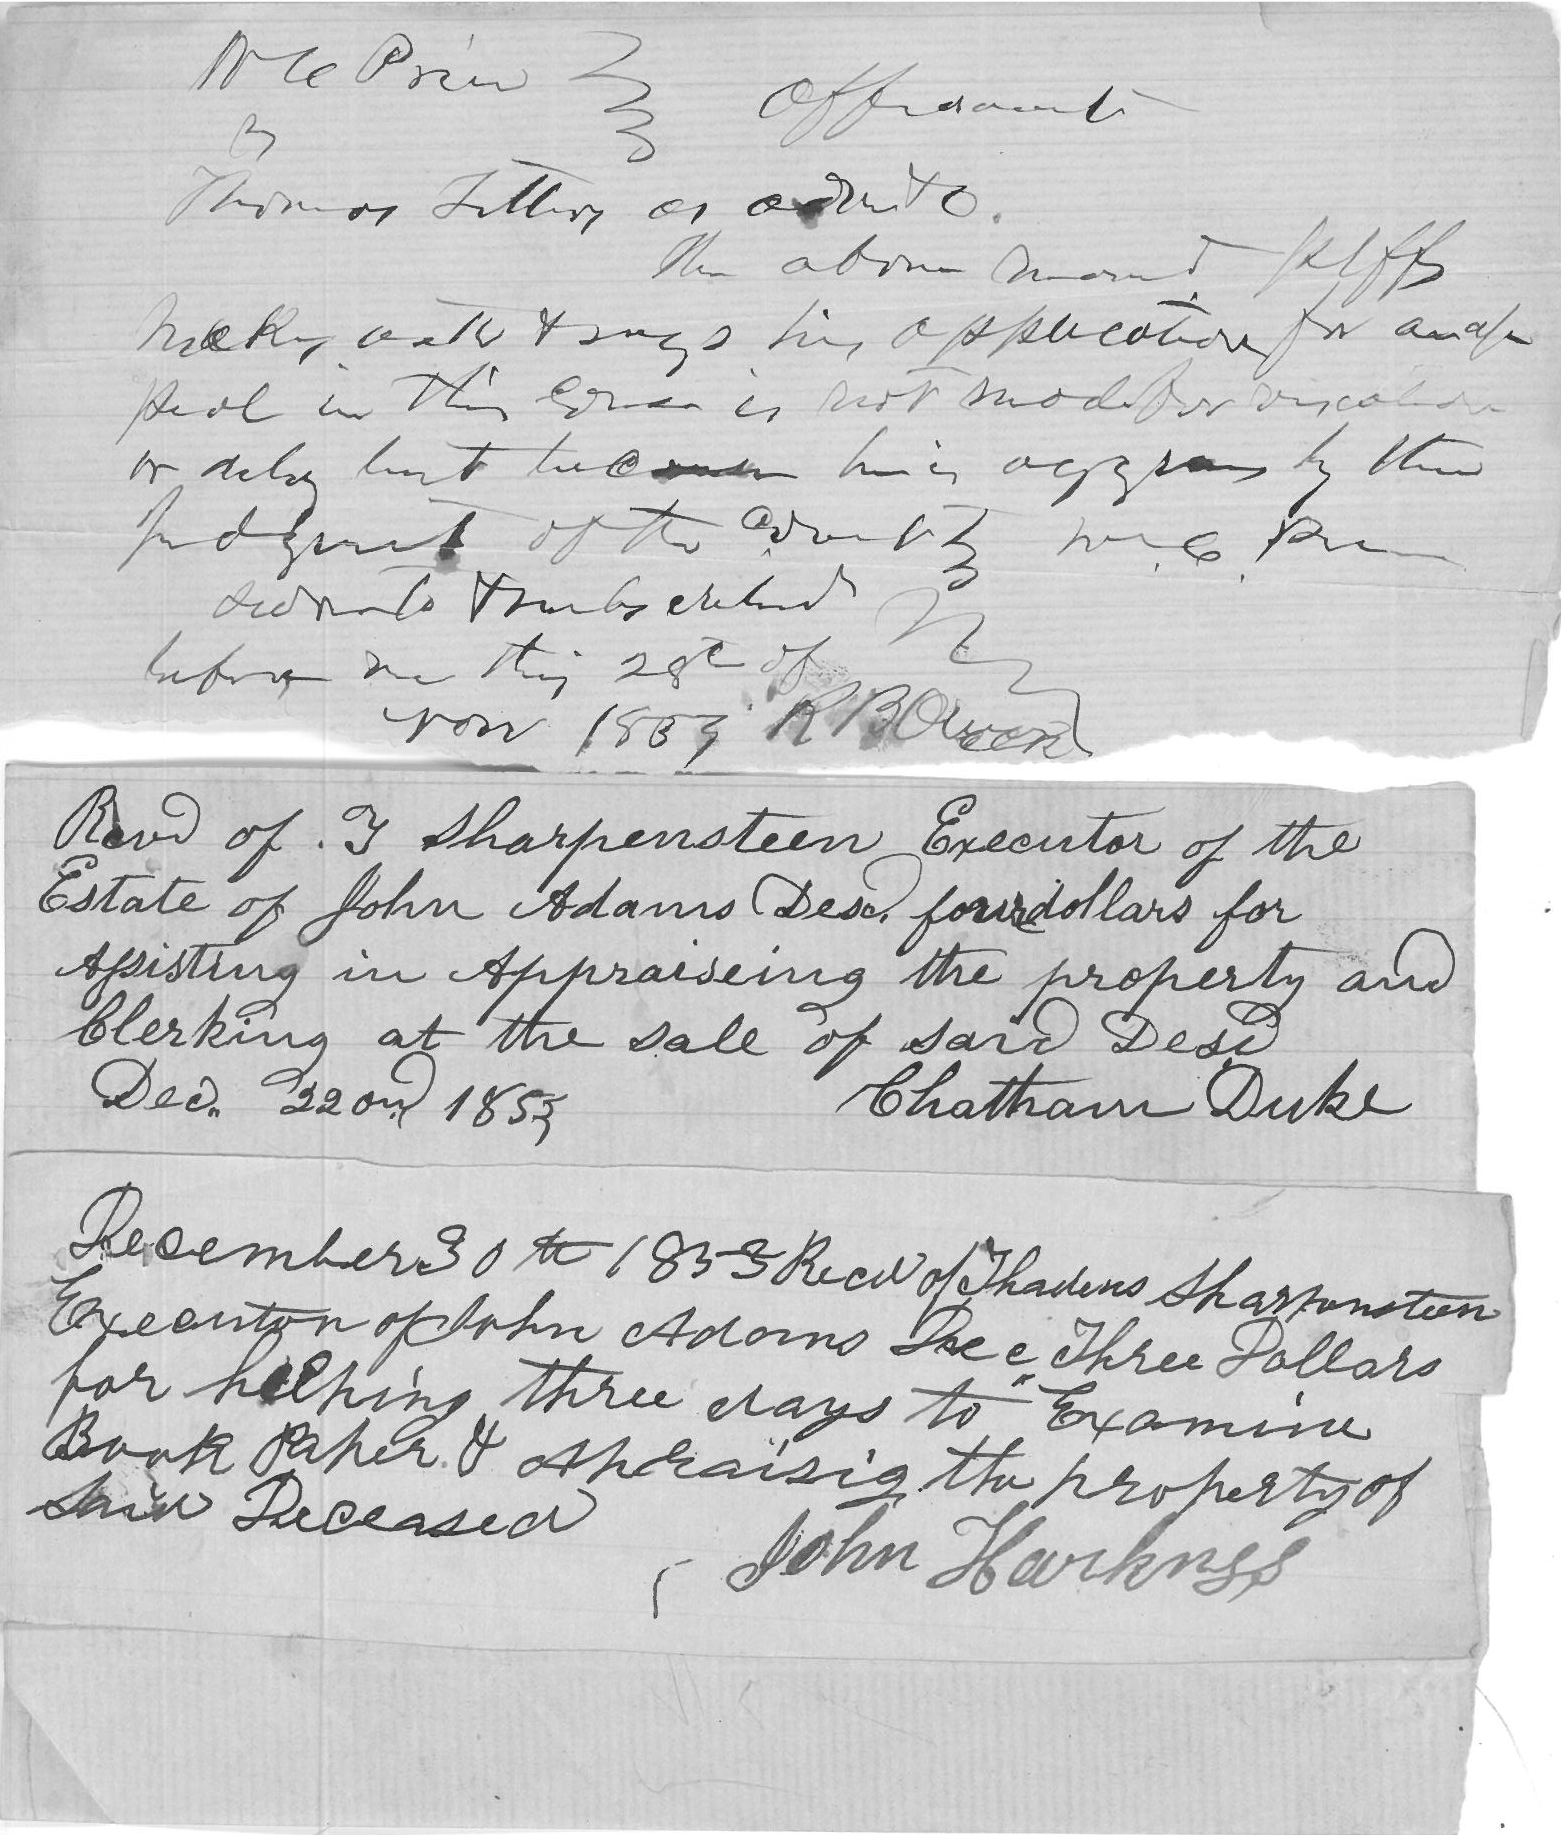 W C Price
Affidavit
vs
Thomas as admr &c.
The above named plff
makes oath & says his application for an ap
peal in this Cause is not made for vexation
or delay but because he is aggrieved by the
judgment of the Court W. C. Price
Sworn to & subscribed
before me this 28th of
Nov 1853 R B Owen
Recvd of T Sharpensteen Executor of the
Estate of John Adams Desd. four dollars for
Assisting in Appraiseing the property and
Clerking at the sale of said Desd
Dec. 22ond 1853 Chatham Duke
December 30th 1853 Recd of Thadeus Sharpensteen
Executor of John Adams Dec Three Dollars
for helping three days to Examine
Book Paper & Apraisig the property of
Said Deceased
John Harkness